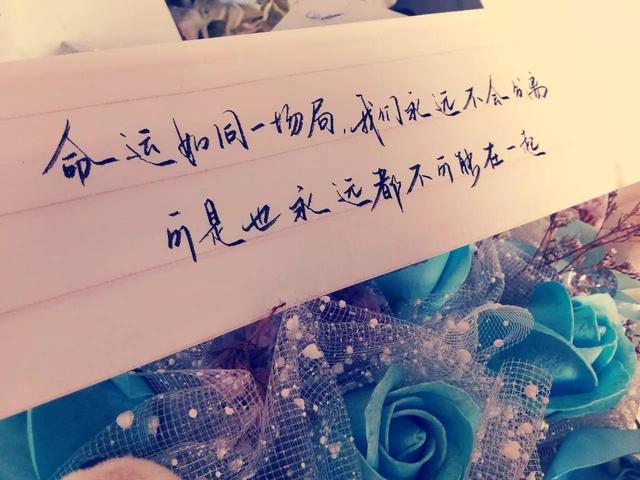 命运如同一场局,我们永远不会分离
可是也永远都不可能在一起